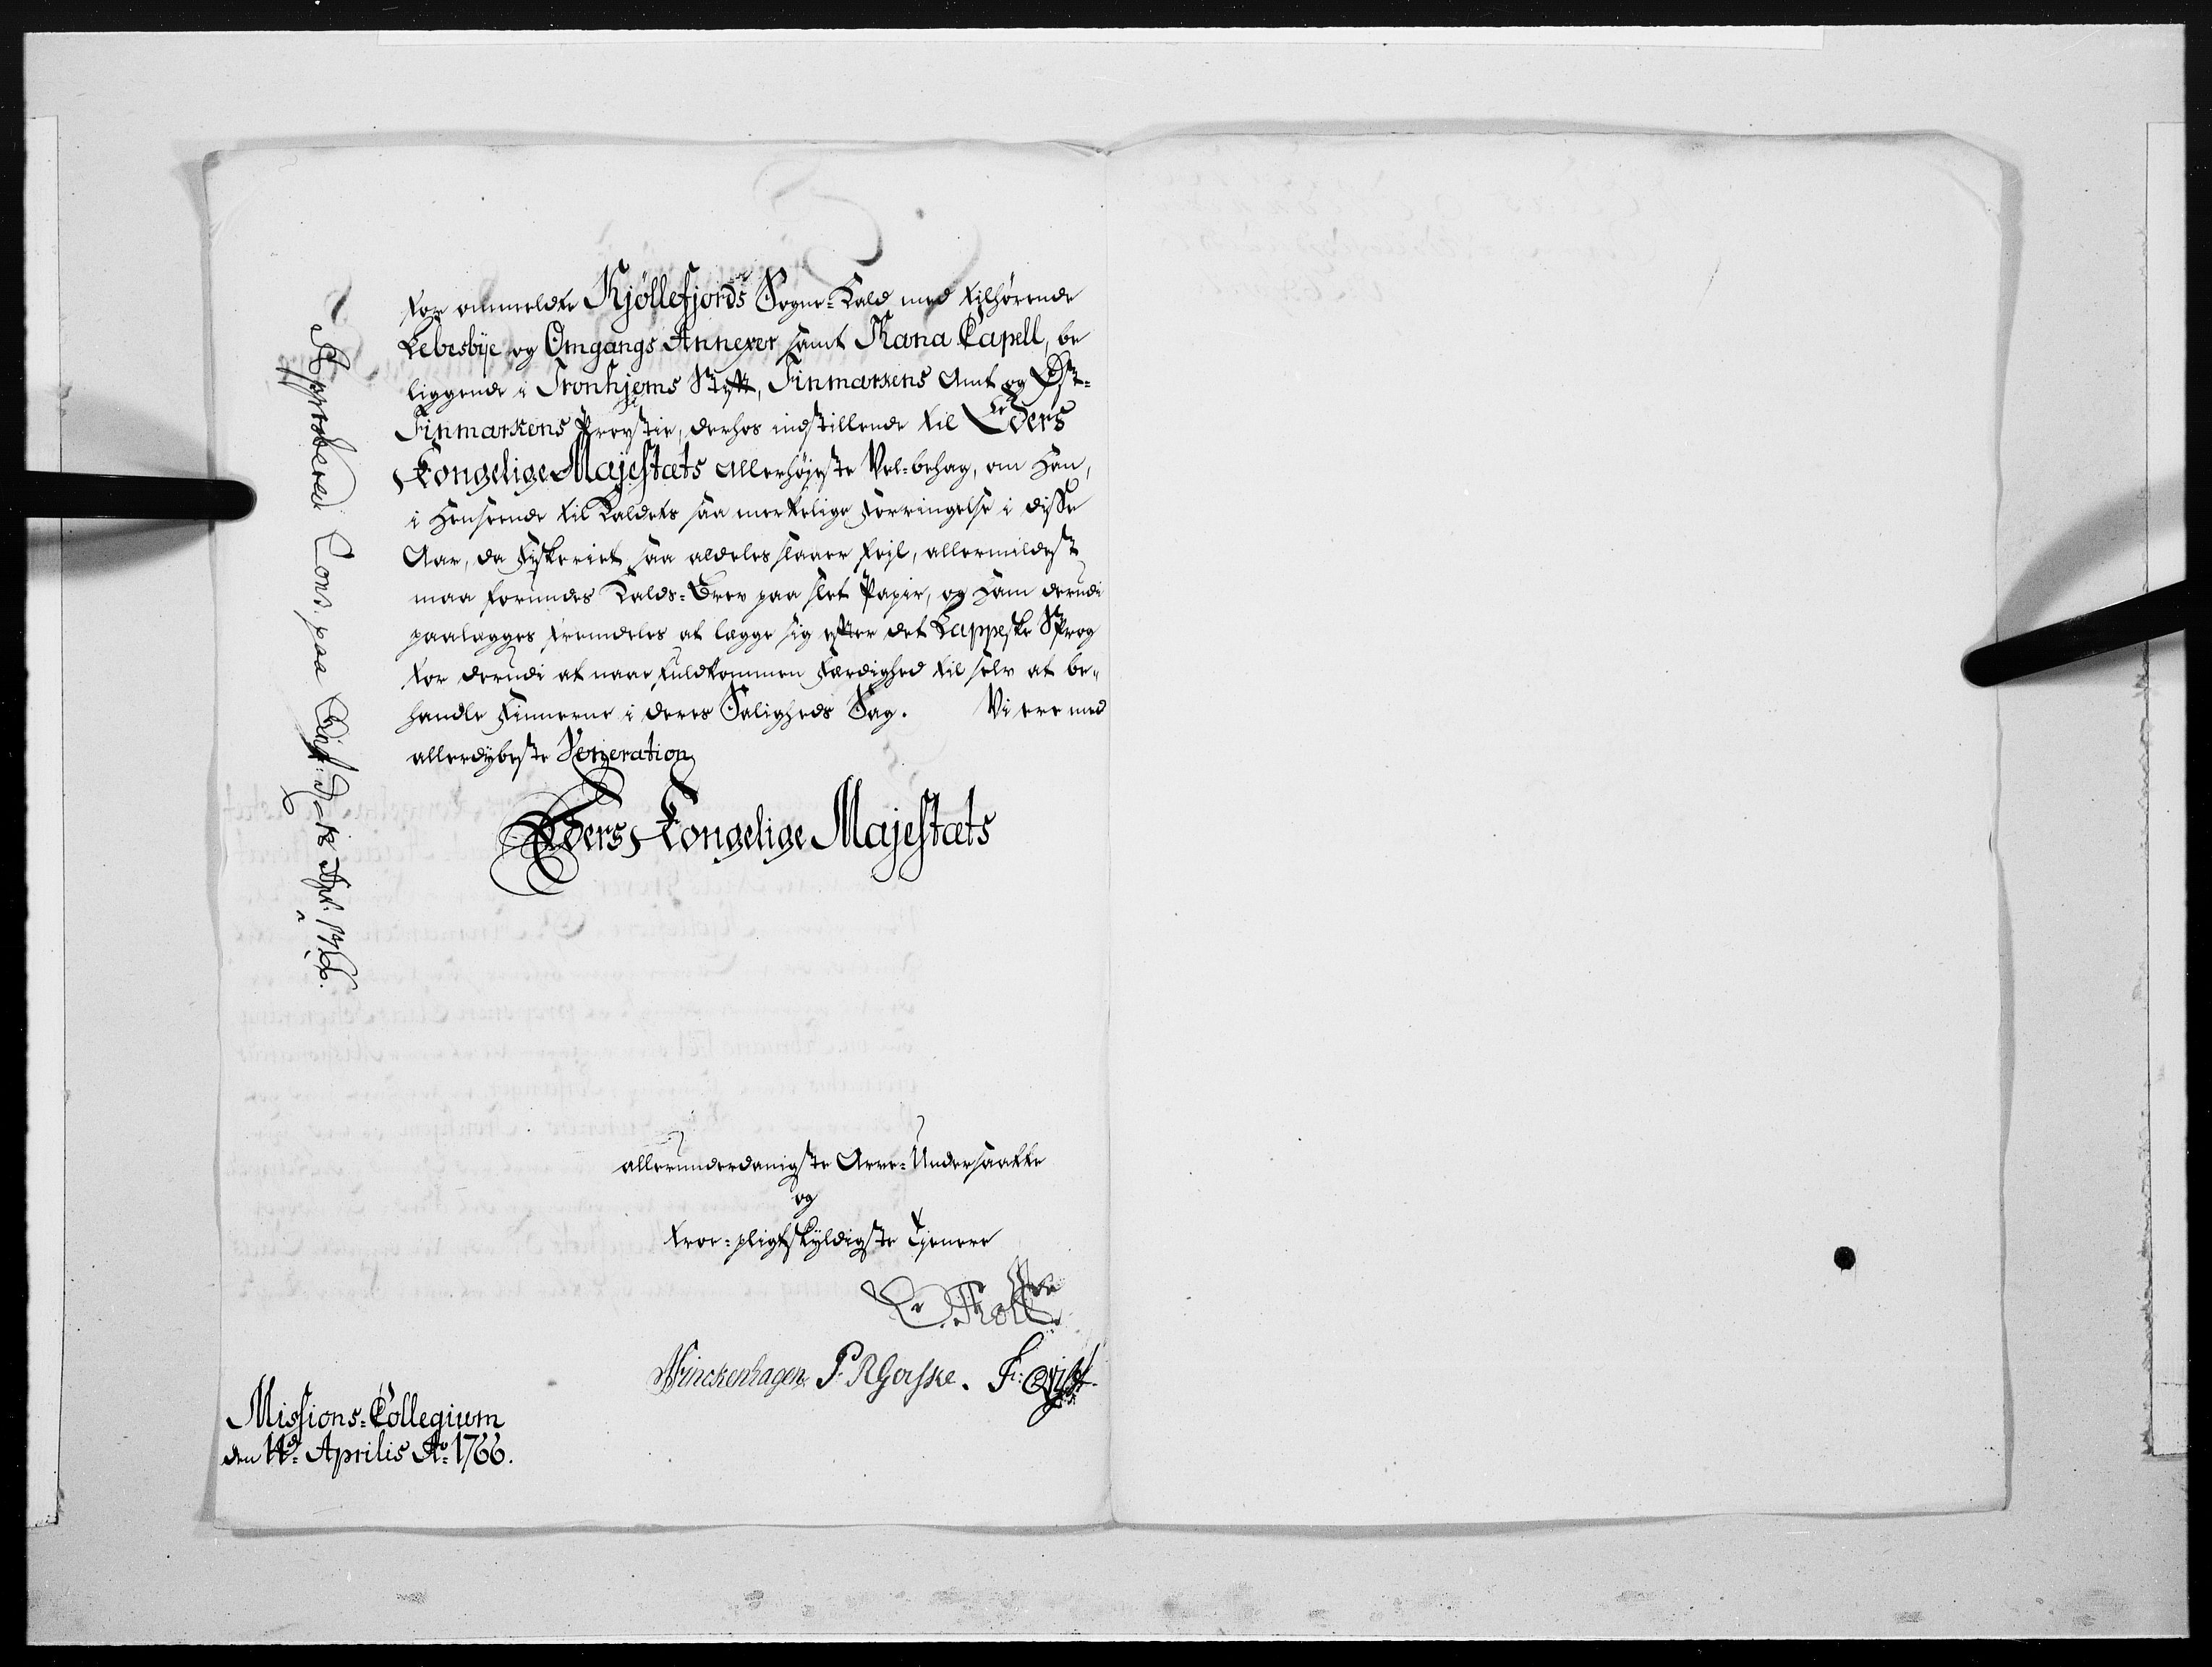 for ommeldte Kjøllefjords Sogne-Kald med tilhørende
Lebesbÿe og Omgangs Annexer samt Thana Capell, be
liggende i Tronhjems Stift, Finmarkens Amt og Øst-
Finmarkens Provstie, derhos indstillende til Eders
Kongelige Majestæts allerhøjeste Vel-behag, om Han,
i Henseende til Kaldets saa merkelige Forringelse i disse
Aar, da Fiskeriet saa aldeles slaaer fejl, allermildest
maa forundes Kalds-Brev paa slet Papir, og Ham derudi
paalægges fremdeles at lægge sig efter det Lappeske Sprog
for derudi at naae fuldkommen Færdighed til selv at be-
handle Finnerne i deres Saligheds Sag. Vi ere med
allerdÿbeste Veneration
Eders Kongelige Majestæts
allerunderdanigste Arve-Undersaatte
og
troe-pligtskÿldigste Tjenere
Finckenhagen. F: Qvist.
Missions-Collegium
den 11te Aprilis Ao 1766.
Approberet Cons. paa d. Apr: 1766.